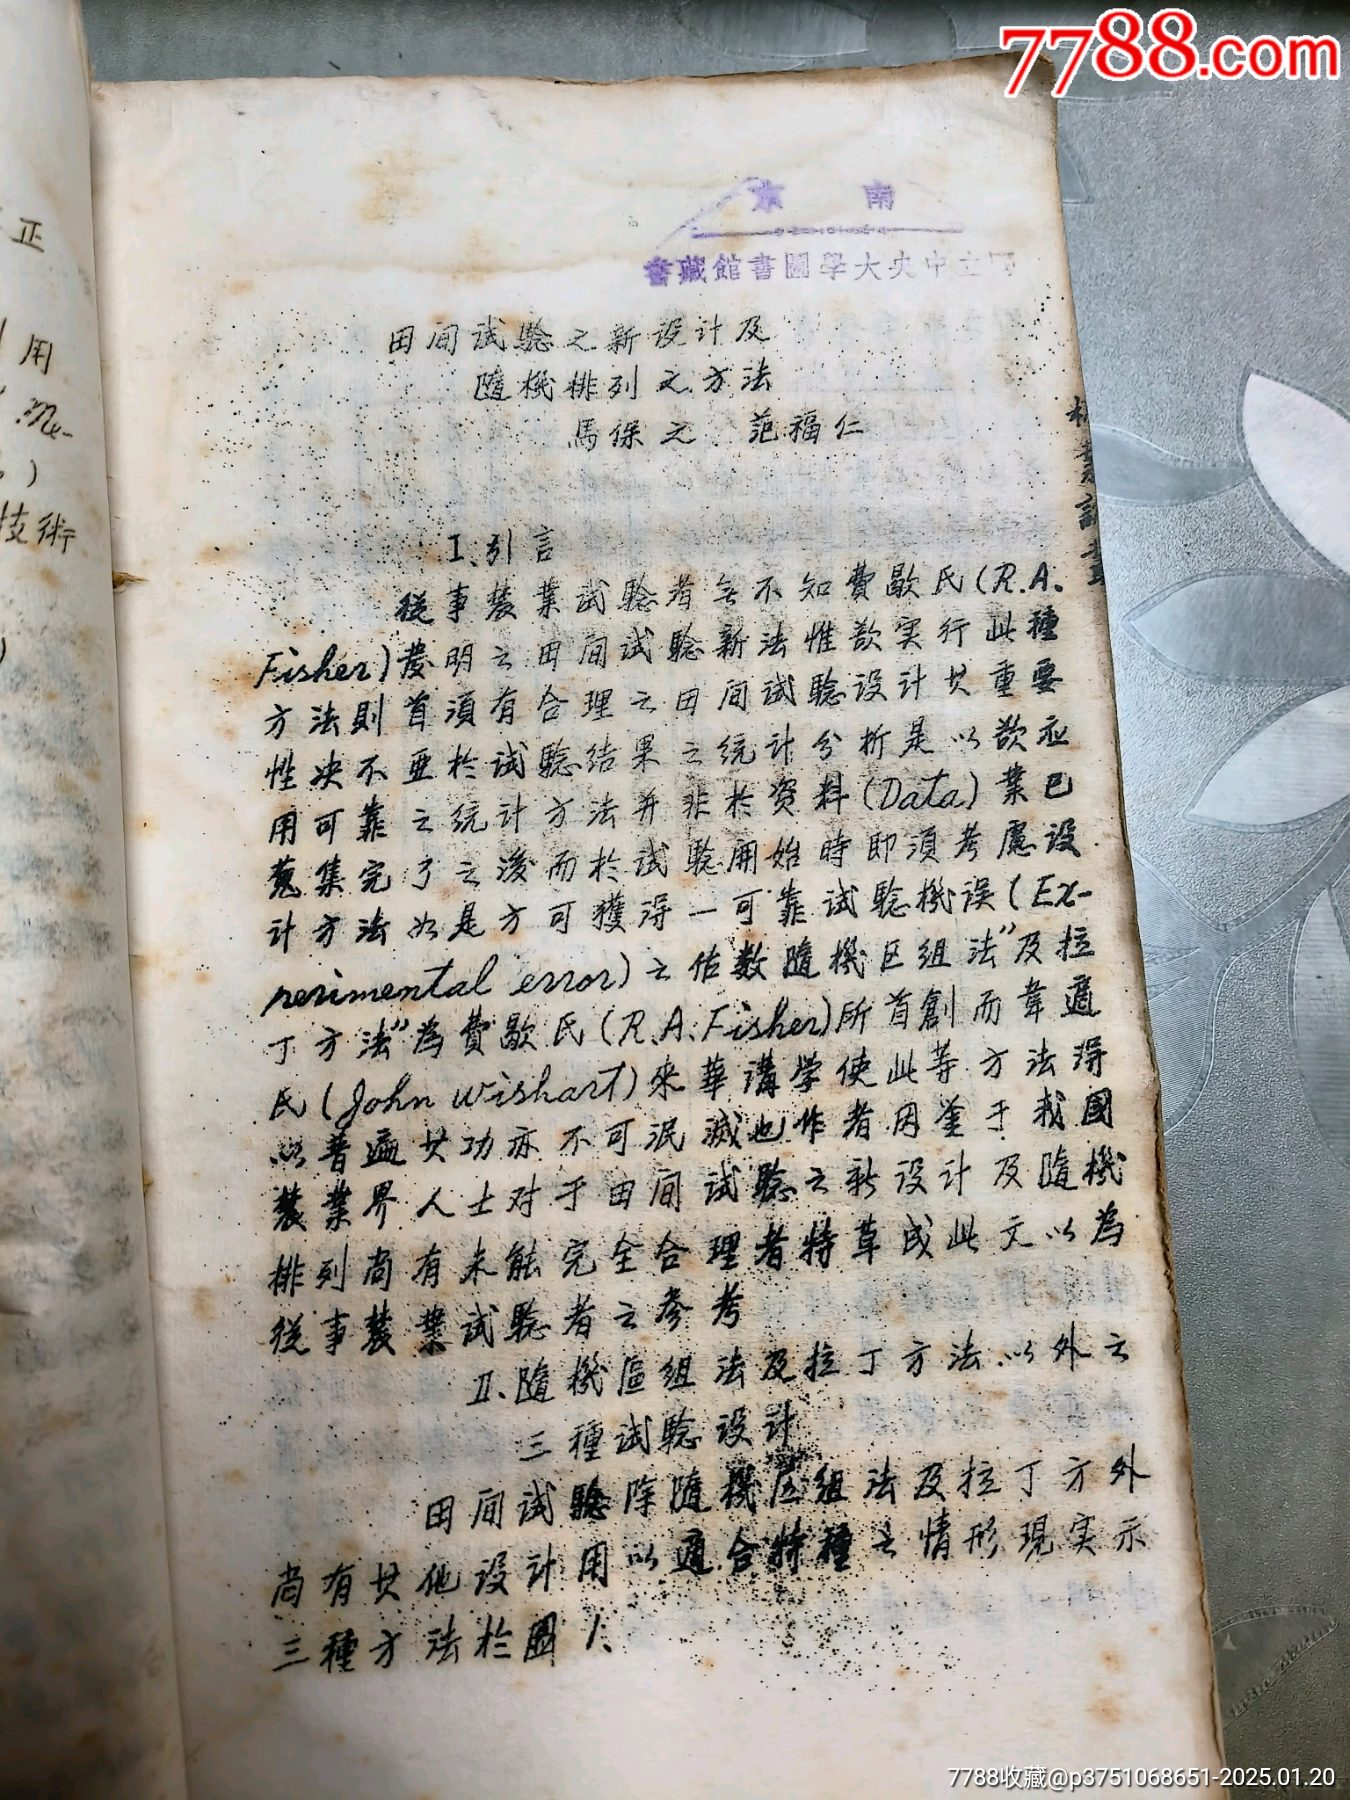 7788.com
南京
國立中央大學圖書館藏書
正
用
Me-
技術
田间試驗之新設计及
隨機排列之方法
馬保之 范福仁
I.引言
從事農業試驗者无不知費歇氏(R.A.
Fisher)發明之田间試驗新法惟欲实行此種
方法則首須有合理之田间試驗設计其重要
性决不亜於試驗结果之统计分析是以欲应
用可靠之统计方法并非於资料(Data)業已
蒐集完了之後而於試驗開始時即須考慮設
计方法如是方可獲得一可靠試驗機误(Ex-
perimental error)之估数隨機区组法"及拉
丁方法"為費歇氏(R.A.Fisher)所首創而韋適
氏(John Wishart)來華講学使此等方法得
以普遍其功亦不可泯滅也作者因鉴于我國
農業界人士对于田间試驗之新設计及隨機
排列尚有未能完全合理者特草成此文以為
從事農業試驗者之参考
II.隨機區组法及拉丁方法以外之
三種試驗設计
田间試驗除隨機区组法及拉丁方外
尚有其他設计用以適合特種之情形現实示
三種方法於圖1.
7788收藏@p3751068651-2025.01.20